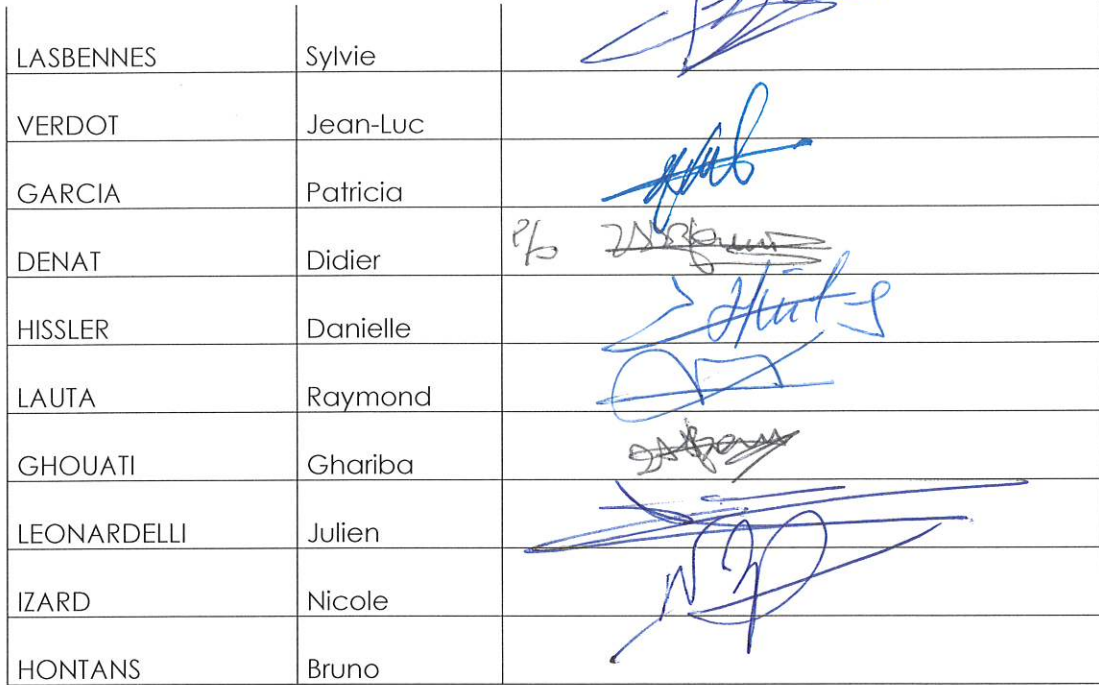 LASBENNES Sylvie
VERDOT Jean-Luc
GARCIA Patricia
DENAT Didier P/o
HISSLER Danielle
LAUTA Raymond
GHOUATI Ghariba
LEONARDELLI Julien
IZARD Nicole
HONTANS Bruno